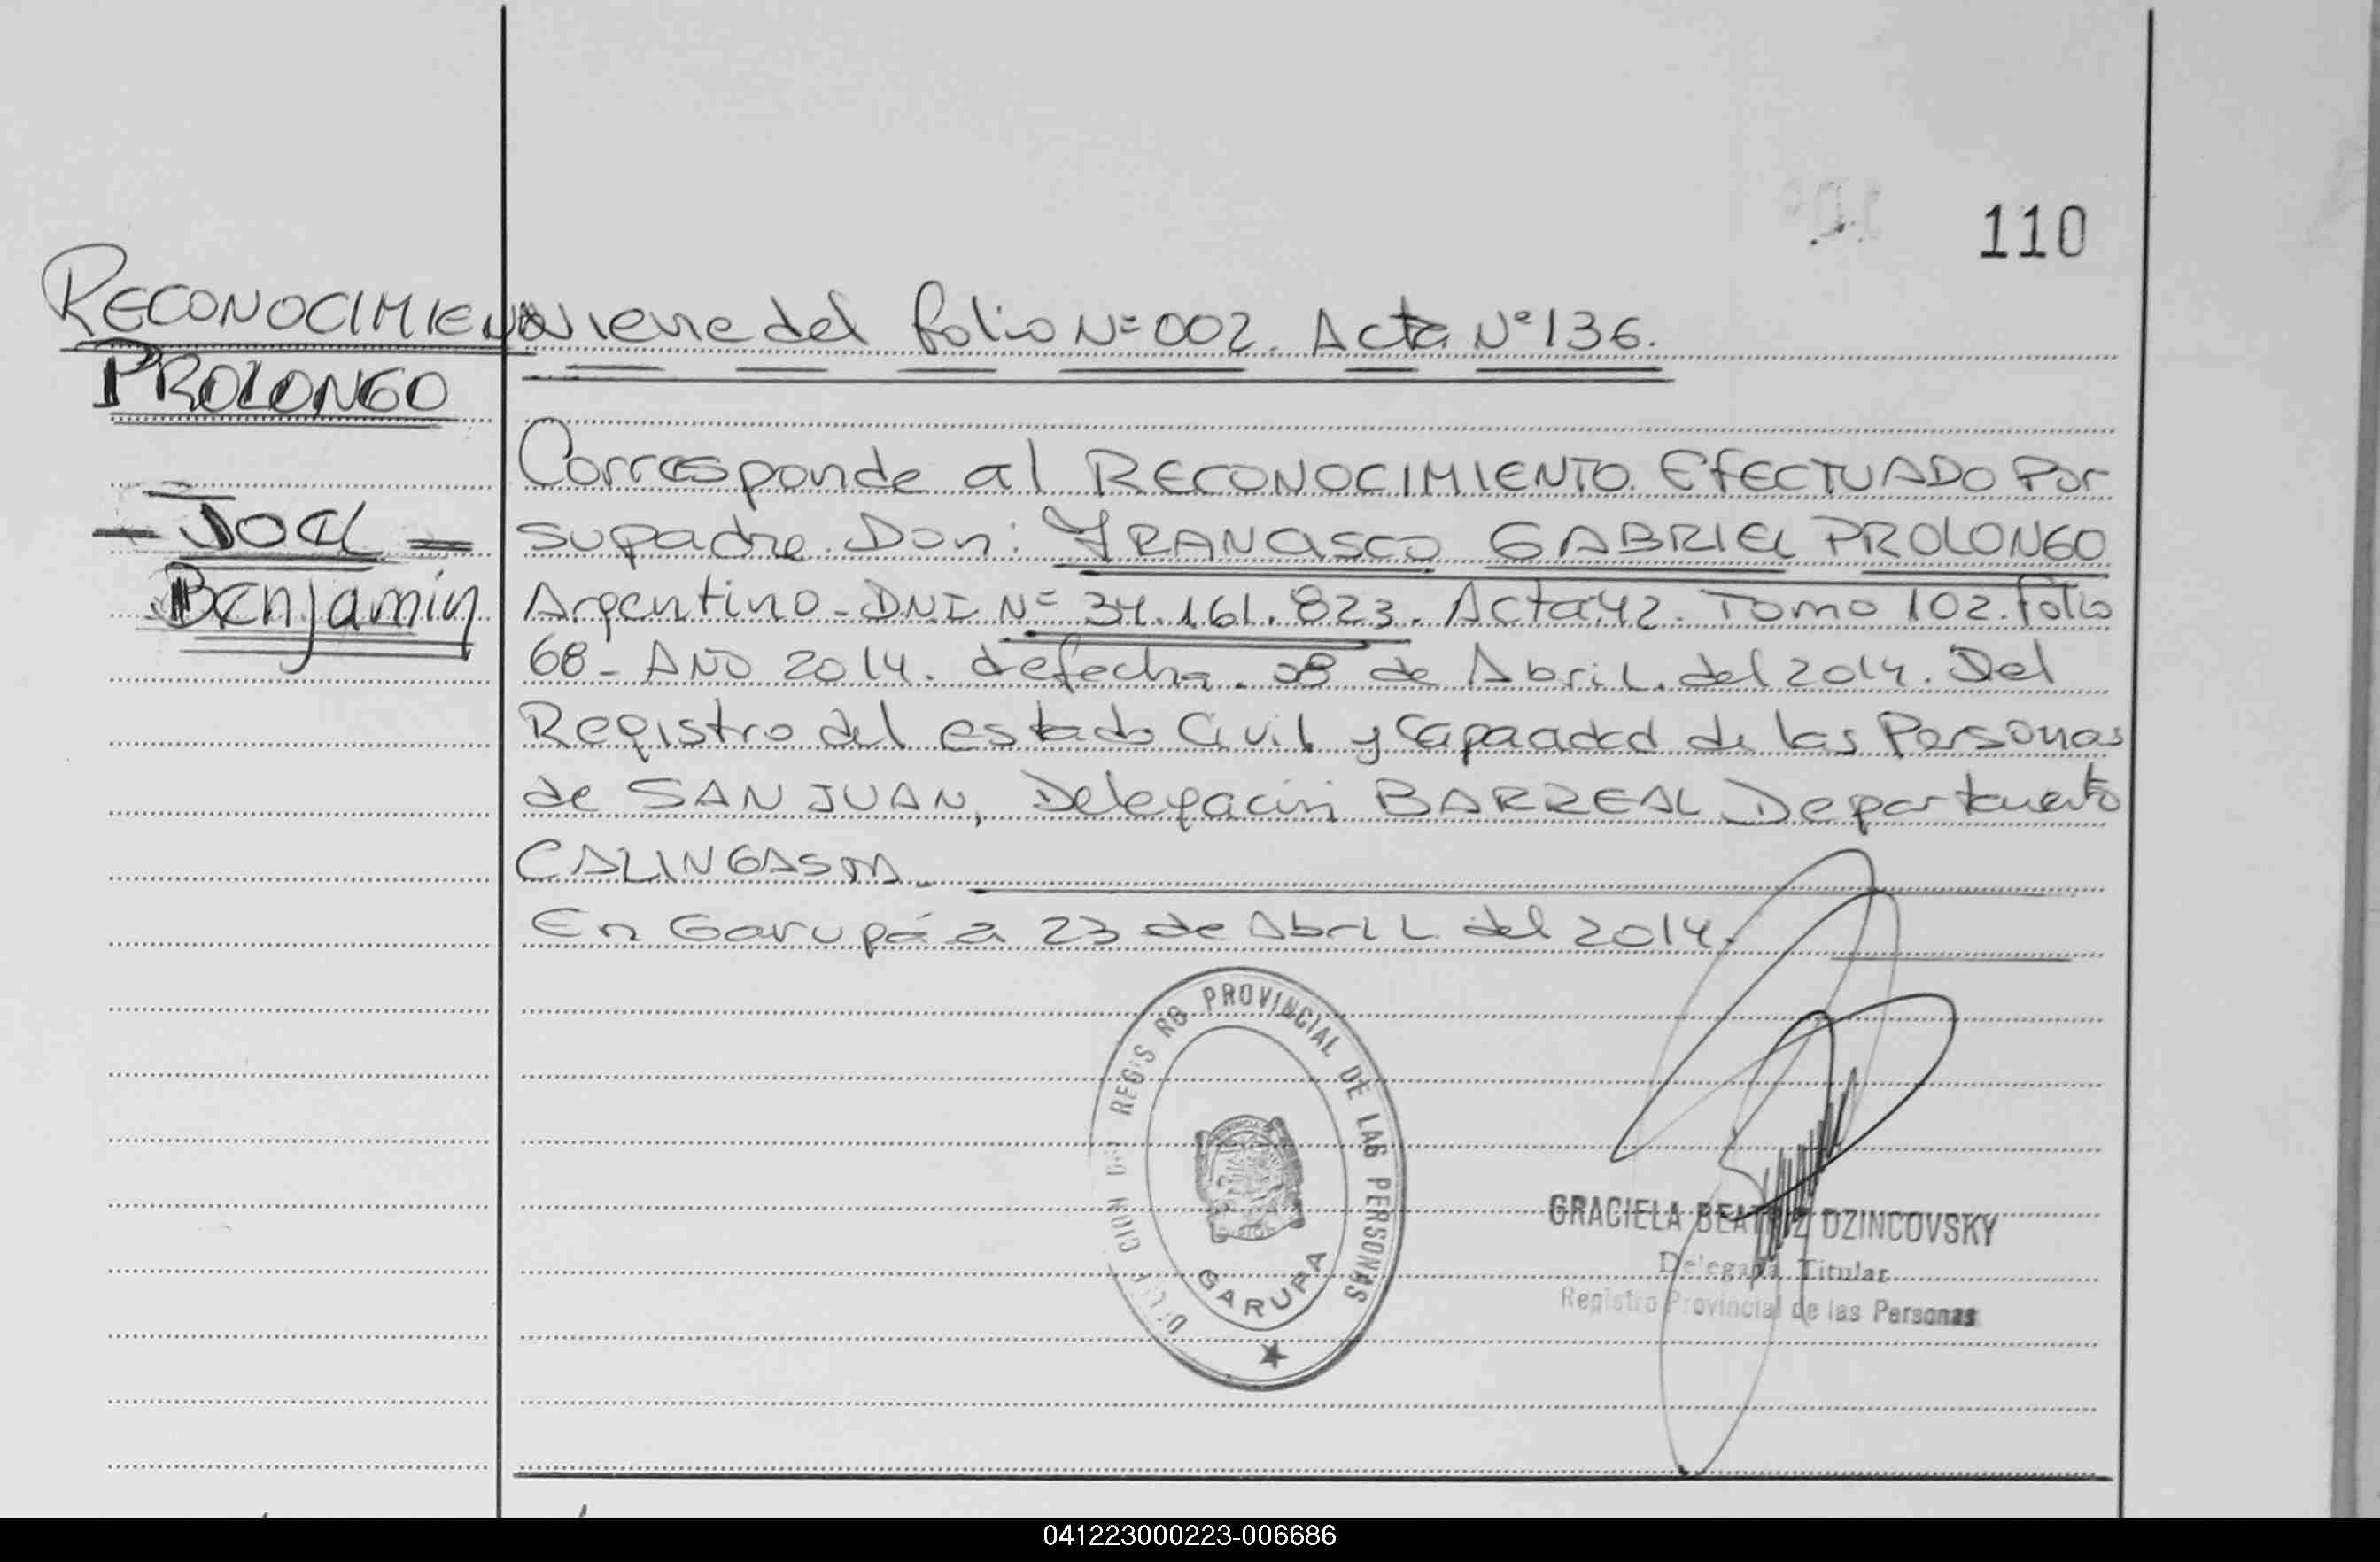 110
RECONOCIMIENTO
PROLONGO
JOEL
Benjamin
Viene del folio Nº 002. Acta Nº 136.
Corresponde al RECONOCIMIENTO EFECTUADO Por
su padre Don: FRANCISCO GABRIEL PROLONGO
Argentino - DNI Nº 34.161.823. Acta 42. Tomo 102. folio
68 - AÑO 2014. de fecha 08 de Abril del 2014. Del
Registro del estado Civil y Capacidad de las Personas
de SAN JUAN, Delegación BARREAL Departamento
CALINGASTA.
En Garupá a 23 de Abril del 2014.
REGIS RO PROVINCIAL DE LAS PERSONAS
GARUPA
GRACIELA BEATRIZ DZINCOVSKY
Delegada Titular
Registro Provincial de las Personas
041223000223-006686